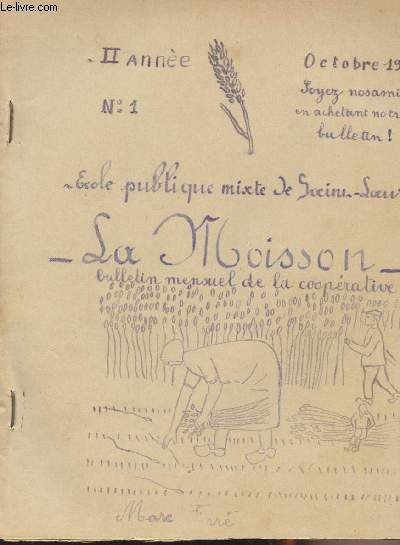 © Le-livre.com
II Année
Octobre-19
Nº1
Soyez nos ami
en achetant notr
bulletin!
Ecole publique mixte de Saint-
_La Moisson_
bulletin mensuel de la coopérative
Marc